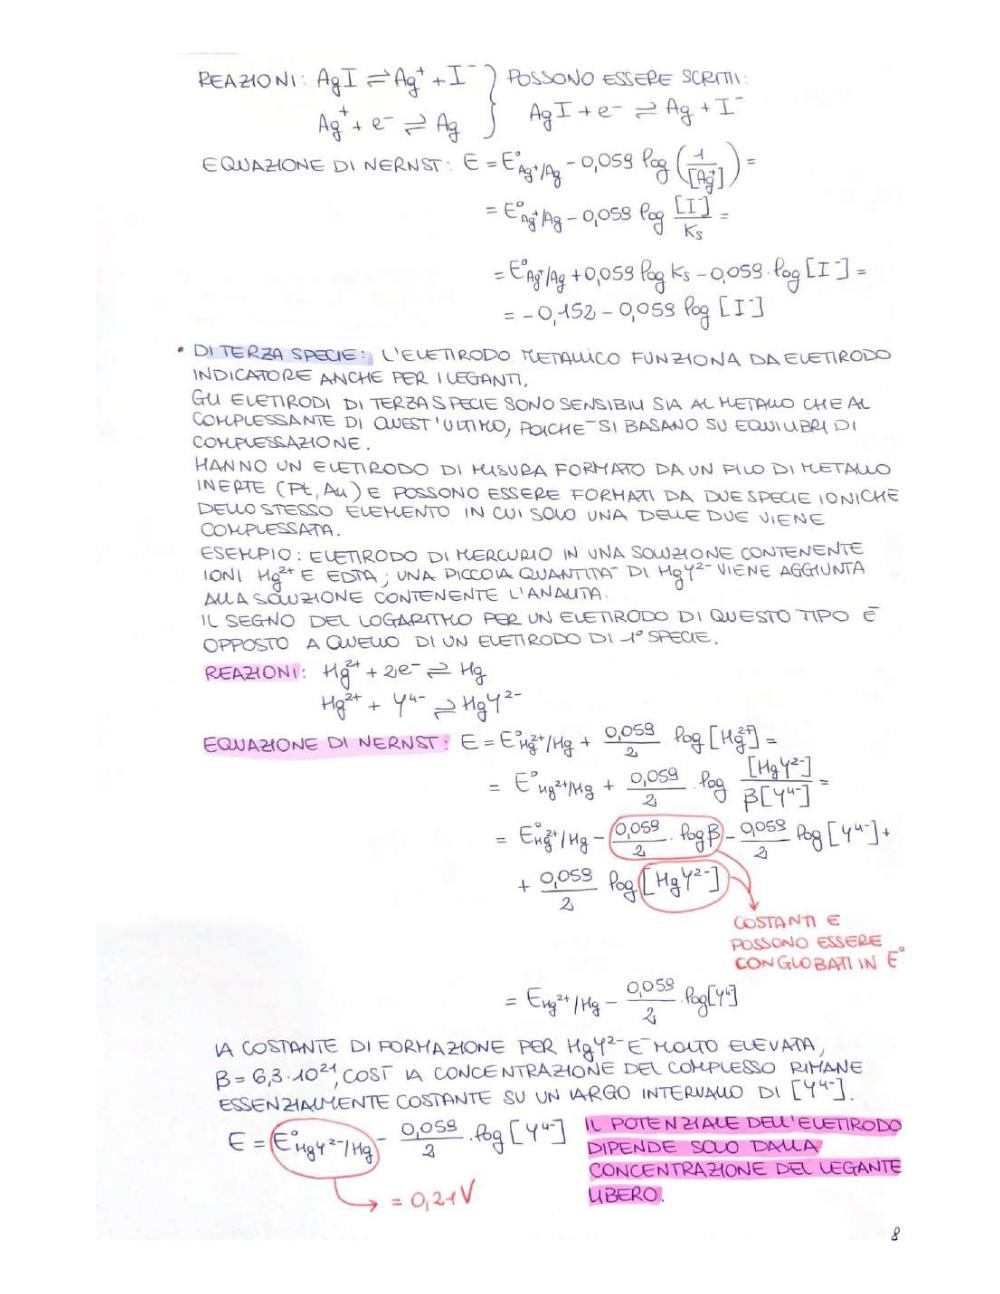 REAZIONI: AgI ⇌ Ag⁺ + I⁻ } POSSONO ESSERE SCRITTI:
Ag⁺ + e⁻ ⇌ Ag } AgI + e⁻ ⇌ Ag + I⁻
EQUAZIONE DI NERNST: E = E°Ag⁺/Ag - 0,059 log (1/[Ag⁺]) =
= E°Ag⁺/Ag - 0,059 log [I⁻]/Ks =
= E°Ag⁺/Ag + 0,059 log Ks - 0,059·log [I⁻] =
= -0,152 - 0,059 log [I⁻]
• DI TERZA SPECIE: L'ELETTRODO METALLICO FUNZIONA DA ELETTRODO
INDICATORE ANCHE PER I LEGANTI.
GLI ELETTRODI DI TERZA SPECIE SONO SENSIBILI SIA AL METALLO CHE AL
COMPLESSANTE DI QUEST'ULTIMO, POICHÉ SI BASANO SU EQUILIBRI DI
COMPLESSAZIONE.
HANNO UN ELETTRODO DI MISURA FORMATO DA UN FILO DI METALLO
INERTE (Pt, Au) E POSSONO ESSERE FORMATI DA DUE SPECIE IONICHE
DELLO STESSO ELEMENTO IN CUI SOLO UNA DELLE DUE VIENE
COMPLESSATA.
ESEMPIO: ELETTRODO DI MERCURIO IN UNA SOLUZIONE CONTENENTE
IONI Hg²⁺ E EDTA; UNA PICCOLA QUANTITÀ DI HgY²⁻ VIENE AGGIUNTA
ALLA SOLUZIONE CONTENENTE L'ANALITA.
IL SEGNO DEL LOGARITMO PER UN ELETTRODO DI QUESTO TIPO È
OPPOSTO A QUELLO DI UN ELETTRODO DI 1° SPECIE.
REAZIONI: Hg²⁺ + 2e⁻ ⇌ Hg
Hg²⁺ + Y⁴⁻ ⇌ HgY²⁻
EQUAZIONE DI NERNST: E = E°Hg²⁺/Hg + 0,059/2 log [Hg²⁺] =
= E°Hg²⁺/Hg + 0,059/2 · log [HgY²⁻]/β[Y⁴⁻] =
= E°Hg²⁺/Hg - 0,059/2 · log β - 0,059/2 log [Y⁴⁻] +
+ 0,059/2 log [HgY²⁻]
COSTANTI E
POSSONO ESSERE
CONGLOBATI IN E°
= EHg²⁺/Hg - 0,059/2 · log [Y⁴⁻]
LA COSTANTE DI FORMAZIONE PER HgY²⁻ È MOLTO ELEVATA,
β = 6,3·10²¹, COSÌ LA CONCENTRAZIONE DEL COMPLESSO RIMANE
ESSENZIALMENTE COSTANTE SU UN LARGO INTERVALLO DI [Y⁴⁻].
E = E°HgY²⁻/Hg - 0,059/2 · log [Y⁴⁻] IL POTENZIALE DELL'ELETTRODO
DIPENDE SOLO DALLA
CONCENTRAZIONE DEL LEGANTE
LIBERO.
= 0,21 V
8